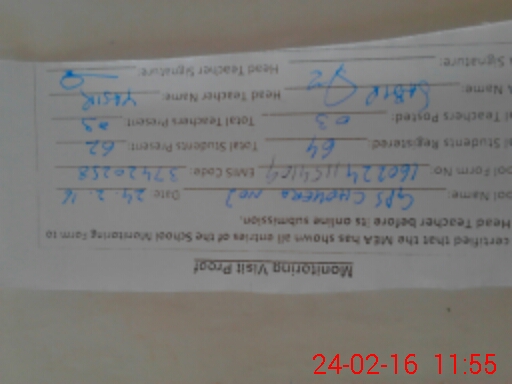 Monitoring Visit Proof
certified that the MEA has shown all entries of the School Monitoring Form to
Head Teacher before its online submission.
ool Name: GPS CHOHERA NO2 Date 24.2.16
ool Form No: 160224111541104 EMIS Code: 37420258
al Students Registered: 64 Total Students Present: 62
al Teachers Posted: 03 Total Teachers Present: 03
A Name: SABIR Head Teacher Name: YASIR
A Signature: Head Teacher Signature:
24-02-16 11:55